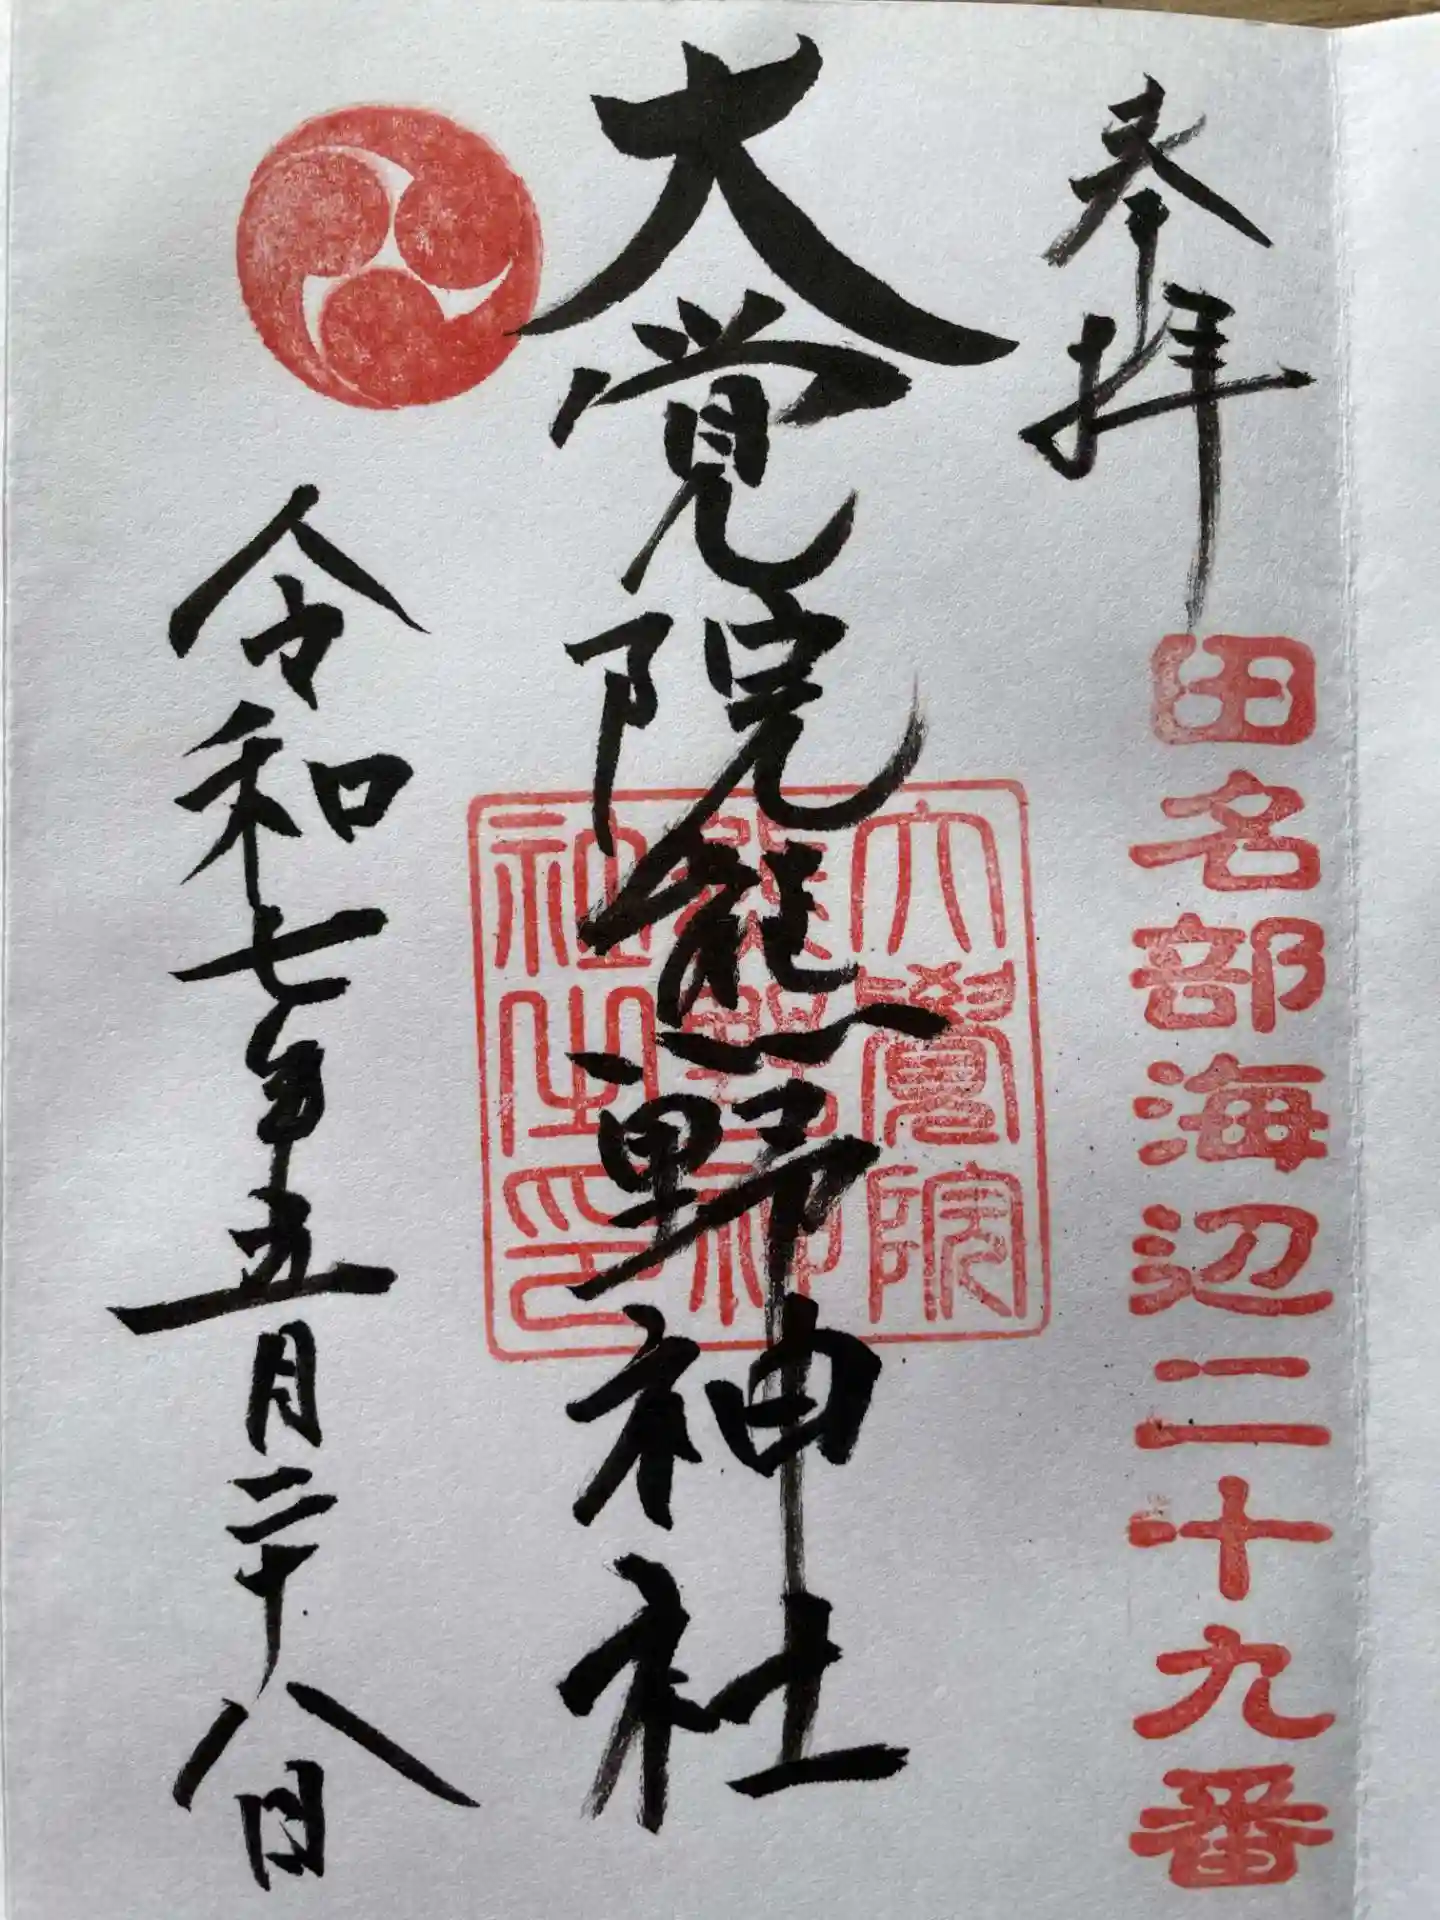 奉拝
田名部海辺二十九番
大覚院熊野神社
大覺院
熊野神
社之印
令和七年五月二十八日